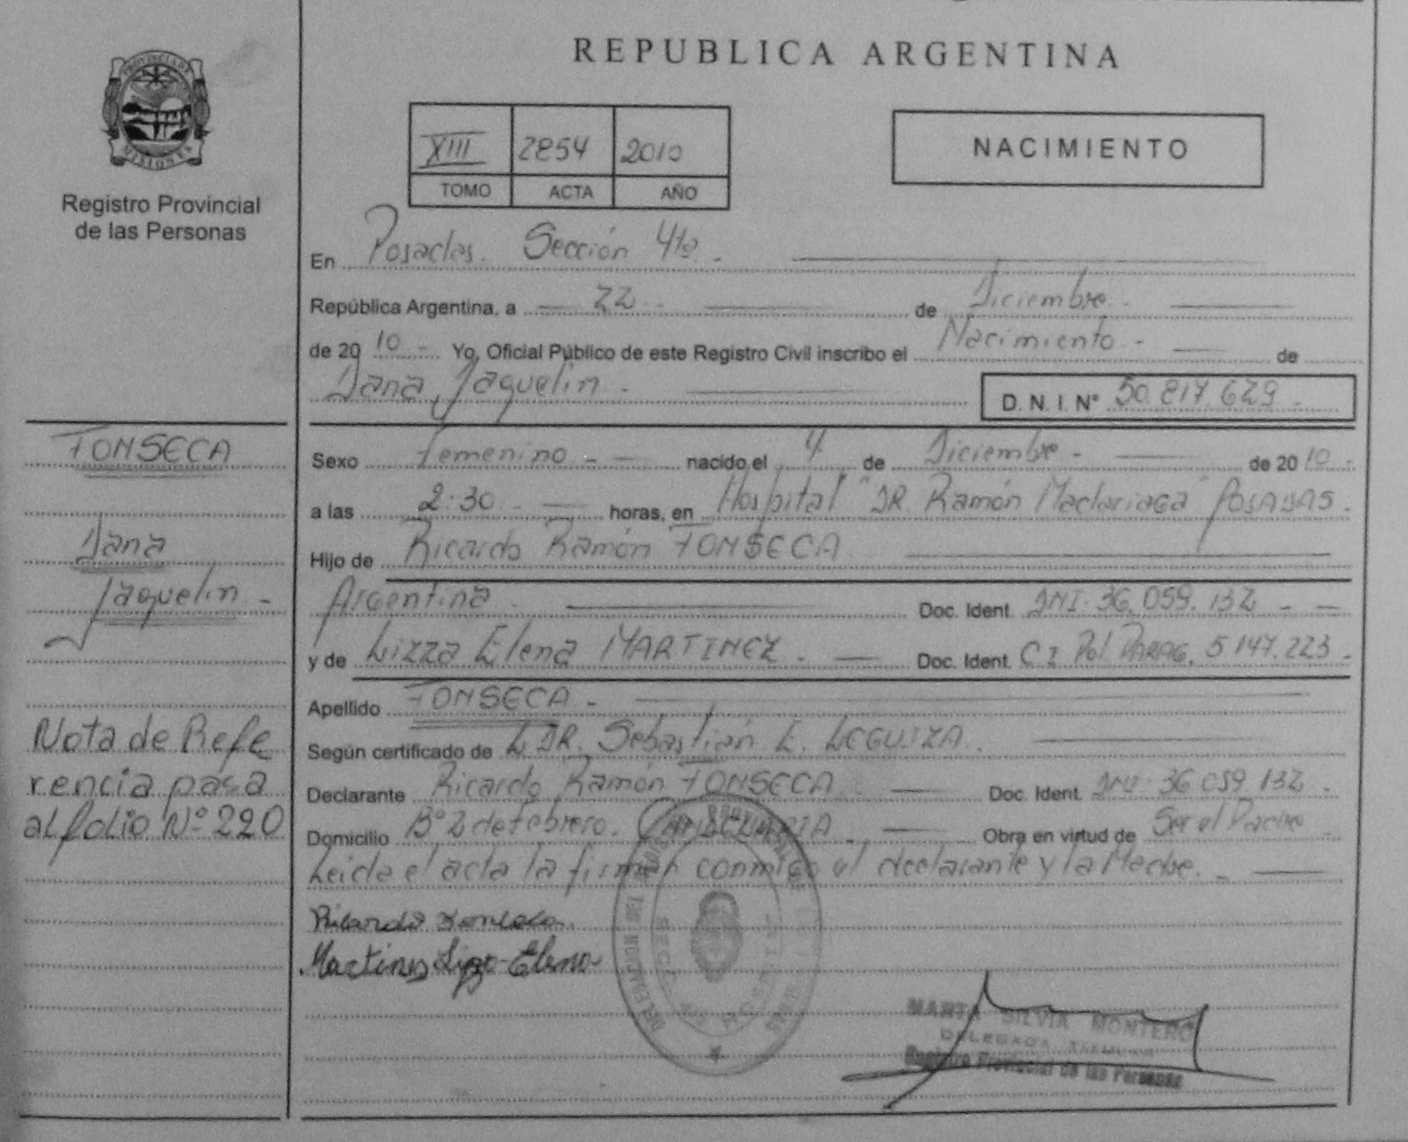 REPUBLICA ARGENTINA
PROVINCIA DE
MISIONES
Registro Provincial
de las Personas
XIII 2854 2010
TOMO ACTA AÑO
NACIMIENTO
En Posadas. Sección 4ta -
República Argentina, a 22 - de Diciembre -
de 2010 - Yo, Oficial Público de este Registro Civil inscribo el Nacimiento - de
Dana Jaquelin - D. N. I. N° 50.817.629 -
FONSECA
Dana
Jaquelin -
Nota de Refe
rencia pasa
al folio Nº 220
Sexo Femenino - nacido el 4 de Diciembre - de 2010 -
a las 2:30 - horas, en Hospital "DR. Ramón Madariaga" POSADAS.
Hijo de Ricardo Ramón FONSECA
Argentina - Doc. Ident. DNI. 36.059.132 - -
y de Lizza Elena MARTINEZ. - Doc. Ident. C.I. Pol. PARAG. 5147.223 -
Apellido FONSECA -
Según certificado de DR. Sebastián E. LEGUIZA.
Declarante Ricardo Ramón FONSECA - Doc. Ident. DNI. 36.059.132 -
Domicilio B° 2 de febrero. - Obra en virtud de Ser el Padre
Leida el acta la firman conmigo el declarante y la Madre. -
Ricardo Fonseca
Martines Lizo Elena
MARTA SILVIA MONTERO
DELEGADA TITULAR
Registro Provincial de las Personas